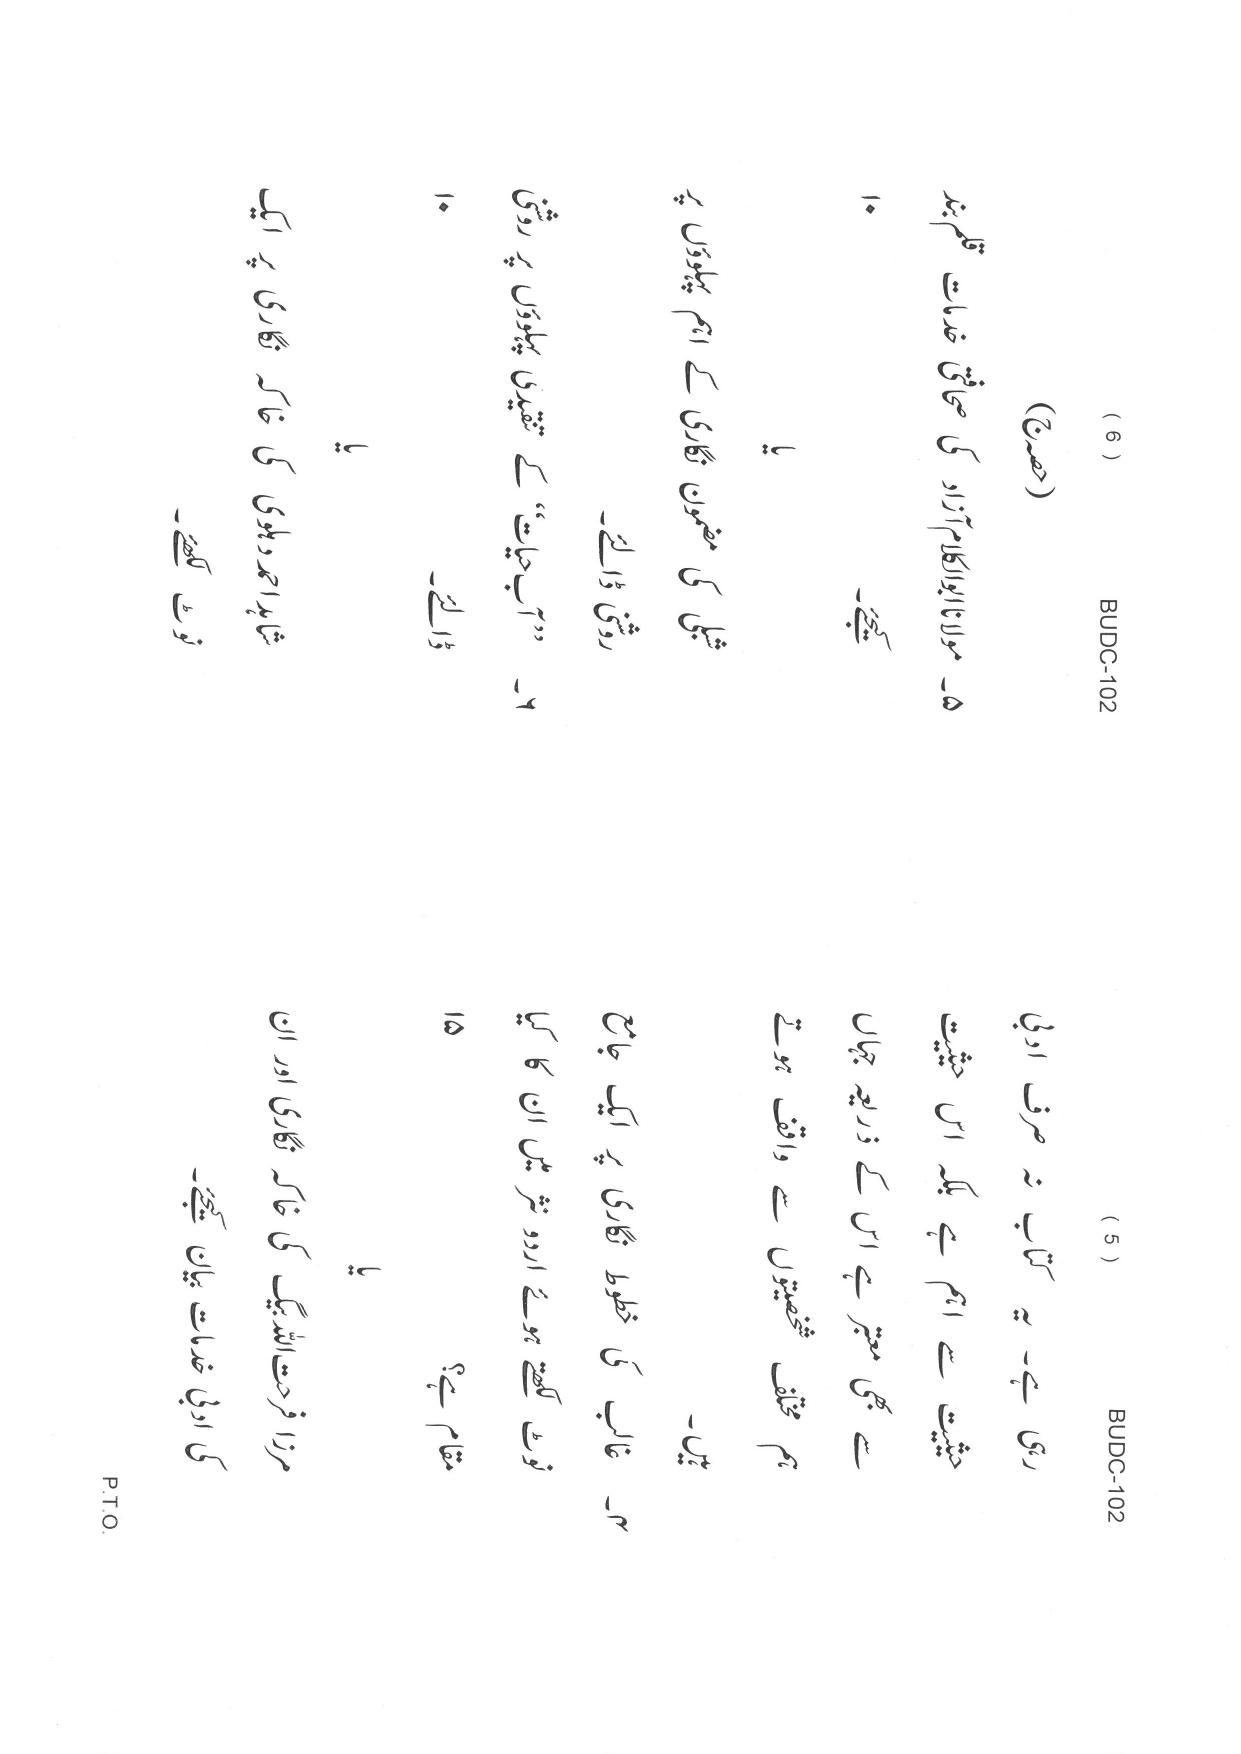 ( 5 ) BUDC-102
رہی ہے۔ یہ کتاب نہ صرف ادبی
حیثیت سے اہم ہے بلکہ اس حیثیت
سے بھی معتبر ہے اس کے ذریعہ جہاں
ہم مختلف شخصیتوں سے واقف ہوتے
ہیں۔
۴۔ غالب کی خطوط نگاری پر ایک جامع
نوٹ لکھتے ہوئے اردو نثر میں ان کا کیا
مقام ہے؟ ۱۵
یا
مرزا فرحت اللہ بیگ کی خاکہ نگاری اور ان
کی ادبی خدمات بیان کیجئے۔
P.T.O.
( 6 ) BUDC-102
(حصہ ج)
۵۔ مولانا ابوالکلام آزاد کی صحافتی خدمات قلم بند
کیجئے۔ ۱۰
یا
شبلی کی مضمون نگاری کے اہم پہلوؤں پر
روشنی ڈالئے۔
۶۔ ’’آب حیات‘‘ کے تنقیدی پہلوؤں پر روشنی
ڈالئے۔ ۱۰
یا
شاہد احمد دہلوی کی خاکہ نگاری پر ایک
نوٹ لکھئے۔